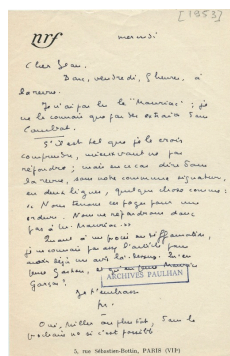 [1953]
nrf
mercredi
Cher Jean.
Bon, vendredi, 5 heures, à
la revue.
Je n'ai pas lu le "Mauriac" ; je
ne le connais que par des extraits dans
Combat.
S'il est tel que je crois
comprendre, mieux vaut ne pas
répondre ; mais en ce cas dire dans
la revue, sous notre commune signature,
en deux lignes, quelque chose comme :
« Nous tenons ces pages pour une
ordure. Nous ne répondrons donc
pas à M. Mauriac. »
Quant à un procès en diffamation,
je ne connais pas assez l'article pour
avoir déjà un avis là-dessus. Qu'en
pense Gaston, et qu'en pense Maurice
Garçon ?
Je t'embrasse
ARCHIVES PAULHAN
Oui, au plus tôt, dans la
si c'est possible
5, rue Sébastien-Bottin, PARIS (VIIe)